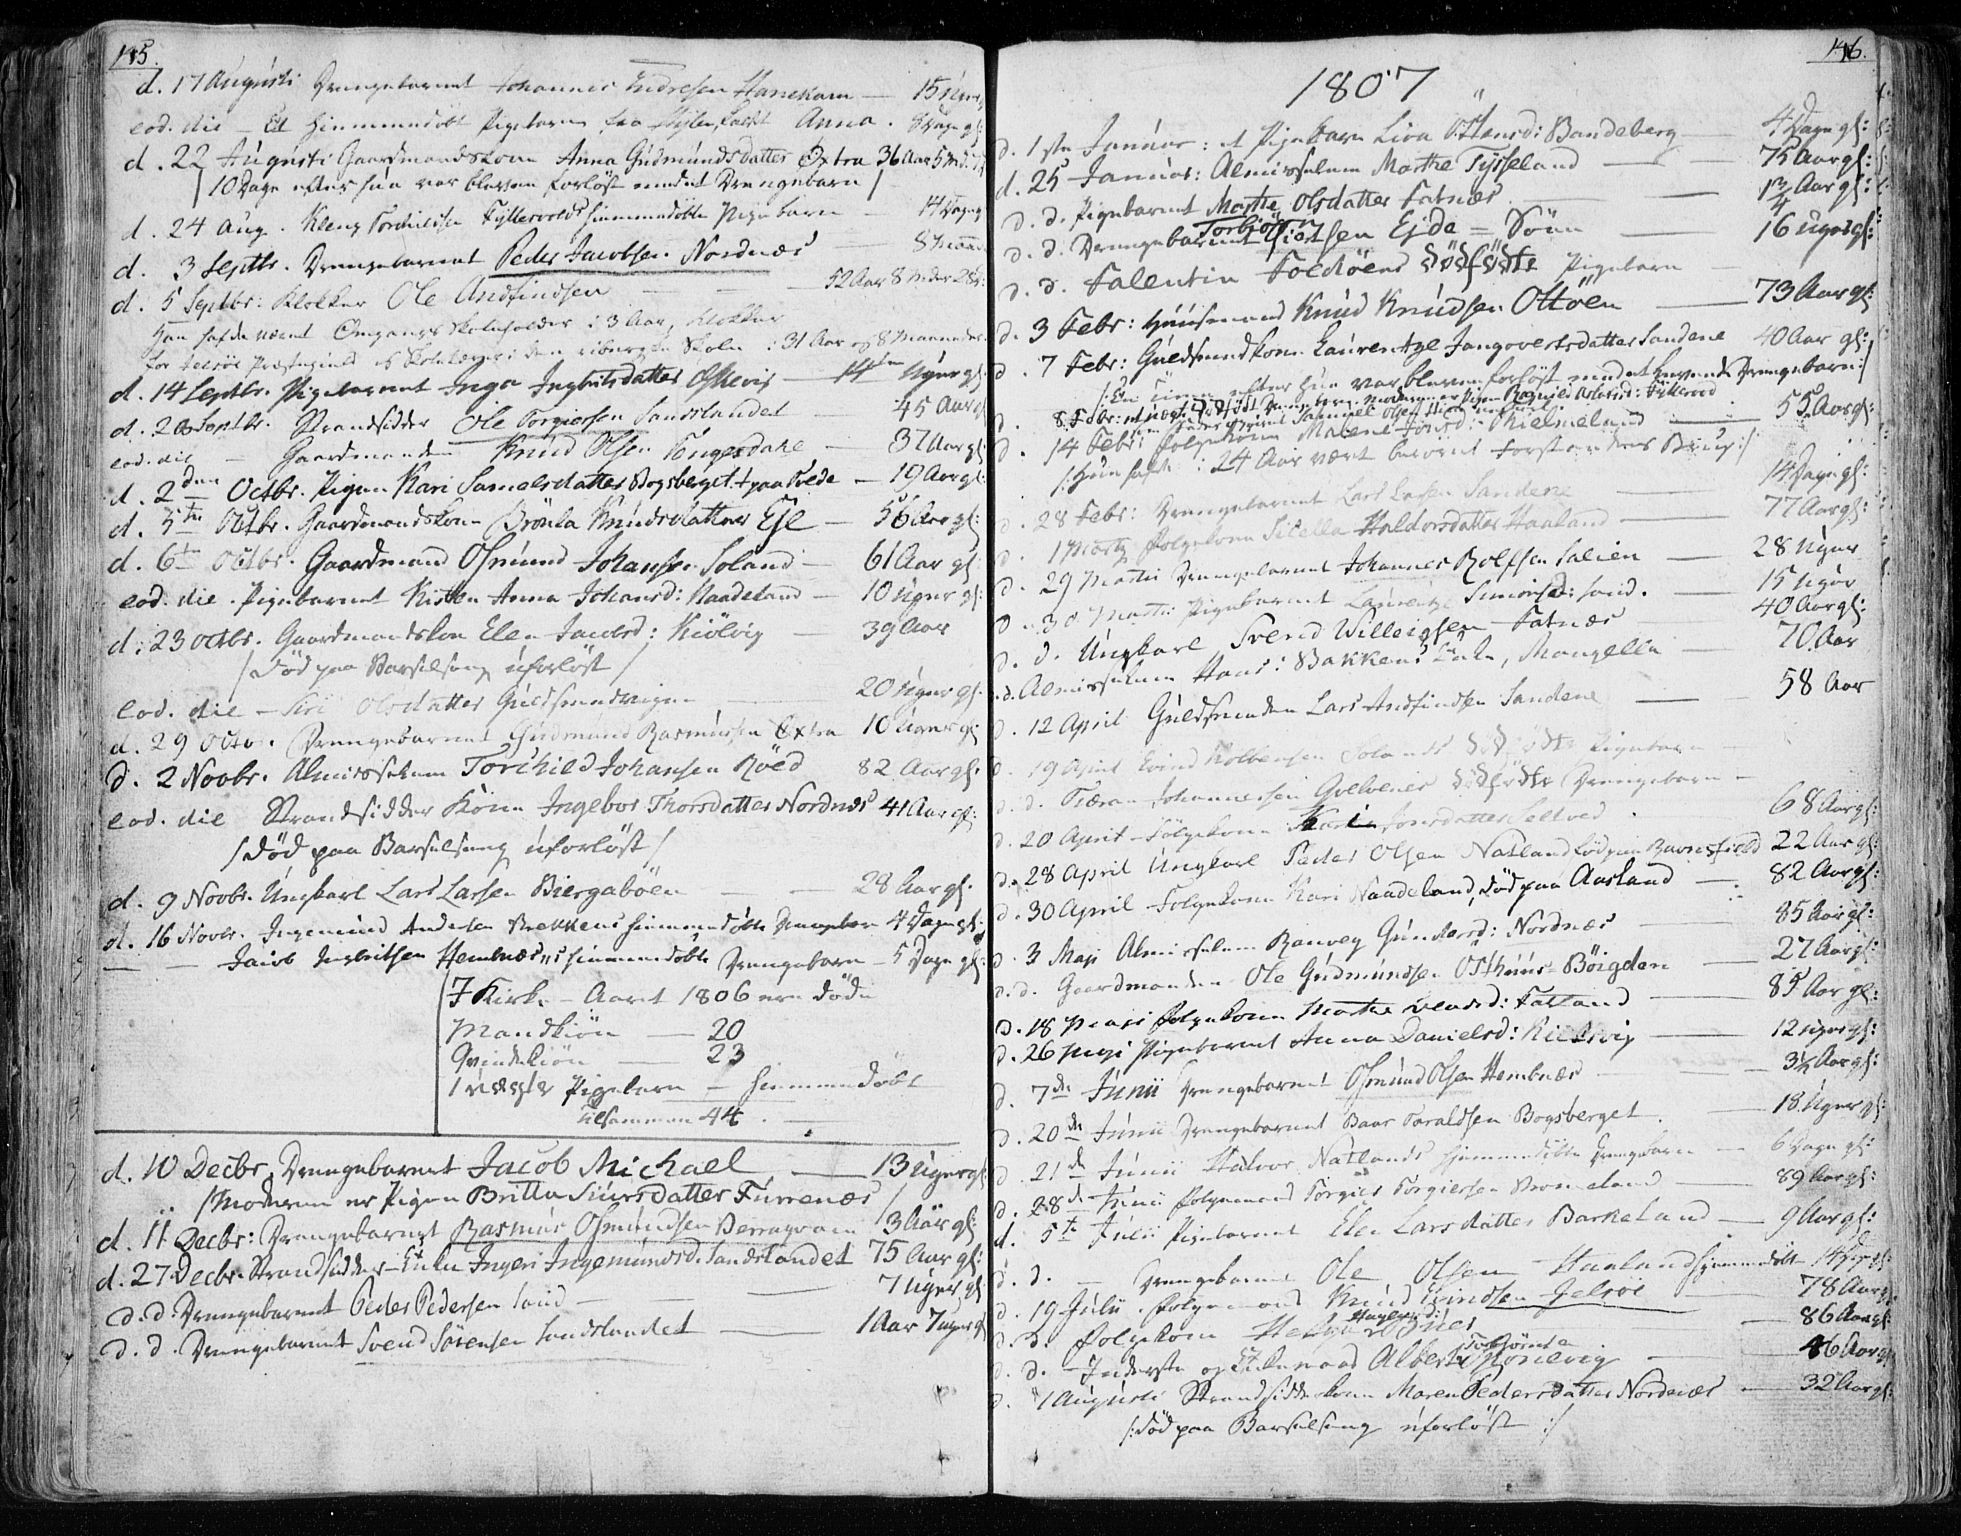 145.
d. 17 Augusti Drengebarnet Johannes Endresen Hanekam — 15 Uger
eod. die — Et hiemmedöbt Pigebarn fra kaldt Anna. 8 Dage gl:
d. 22 Augusti Gaardmandskone Anna Gudmundsdatter Extra 36 Aar 5 Mdr
/10 Dage efter hun var bleven forlöst med et Drengebarn/
d. 24 Aug. Kleng Torchildsen hiemmedöbte Pigebarn — 14 Dage
d. 3 Septbr. Drengebarnet Peder Jacobsen Nordnæs 8 Maan
d. 5 Septbr: Klokker Ole Andfindsen — 52 Aar 8 Mdr 28
Han hafde været Omgangs Skoleholder i 3 Aar, Klokker
for Jelsöe Præstegield og Skolelærer i den Skole i 31 Aar og 8 Maaneder
d. 14 Septbr. Pigebarnet Inger Ingbritsdatter Oshevig — 14 Uger gl:
d. 28 Septbr. Strandsidder Ole Torgiersen Sandslandet 45 Aar gl
eod. die — Gaardmanden Knud Olsen Tengesdahl — 37 Aar gl:
d. 2den Octbr. Pigen Kari Samelsdatter Bogsberget — 19 Aar gl:
d. 5te Octbr. Gaardmandskone Brönla Knudsdatter Eje — 56 Aar gl:
d. 6te Octbr. Gaardmand Osmund Johansen Soland — 61 Aar gl:
eod. die. Pigebarnet Kisten Anna Johansd: Naadeland — 10 Uger gl:
d. 23 Octbr. Gaardmandskon Elen Jacobsd: Kiölvig — 39 Aar
/Död paa Barselseng uforlöst/
eod. die — Siri Olsdatter Guldsmedvigen — 20 Uger gl.
d. 29 Octo. Drengebarnet Gudmund Rasmusen Extra 10 Uger gl:
d. 2 Novbr. Almisselem Torchild Johansen Röed 82 Aar gl:
eod. die Strandsidder Kone Ingebor Thorsdatter Nordnæs 41 Aar gl:
/Död paa Barselseng uforlöst/
d. 9 Novbr. Ungkarl Lars Larsen Biergaböen — 28 Aar gl.
d. 16 Novbr. Ingemund Andersen Brekkens hiemmedöbte Drengebarn 4 Dage gl:
— — Jacob Ingbritsen Hembnæs's hiemmedöbte Drengebarn — 5 Dage gl:
I Kirke-Aaret 1806 ere döde
Mandkiön — 20
Qvindekiön — 23
1 Pigebarn — hiemmedöbt
Tilsammen 44.
d. 10 Decbr. Drengebarnet Jacob Michael — 13 Uger gl
/Moderen er Pigen Britta Siursdatter Furrenæs/
d. 11 Decbr: Drengebarnet Rasmus Osmundsen 3 Aar gl:
d. 27 Decbr. Strandsidder-Enke Ingeri Ingemundsd. Sandslandet 75 Aar gl:
d. d. Drengebarnet Peder Pedersen Sand — 7 Uger gl
d. d. Drengebarnet Svend Sörensen Sandslandet — 1 Aar 7 Uger gl
146.
1807
d. 1ste Januar: et Pigebarn Liva Bandeberg 4 Dage gl:
d. 25 Januar: Almisselem Marthe Tysseland — 75 Aar gl:
d. d. Pigebarnet Marthe Olsdatter Fatnæs — 1 3/4 Aar gl:
d. d. Drengebarnet Torbiörn Ejda = Sönn 16 Uger gl:
d. d. Falentin Foldöens dödfödte Pigebarn —
d. 3 Febr: Huusmand Knud Knudsen Ottöen — 73 Aar gl:
d. 7 Febr: Guldsmedkone Laurentze Jangovertsdatter Sandene 40 Aar gl:
/:En Time efter hun var bleven forlöst med et levende Drengebarn:/
d. 8 Febr: et uægte dödfödt Drengebarn, Moderen er Pigen Ragnild
d. 14 Febr: Folgekone Malene Jonsd: Kielmeland — 55 Aar gl:
/:Hun hafde i 24 Aar vært berövet Forstandens Brug:/
d. 28 Febr: Drengebarnet Lars Larsen Sandene — 14 Dage gl:
d. 1 Marty Folgekone Sitella Haldorsdatter Haaland — 77 Aar gl:
d. 29 Martii Drengebarnet Johannes Rolfsen Salien — 28 Uger
d. 30 Martii Pigebarnet Laurentze Simonsd: Sand. — 15 Uger
d. d. Ungkarl Svend Willeigsen Fatnæs 40 Aar gl:
d. d. Almisselem Hans: Bakkens Enke, Mangella — 70 Aar
d. 12 April Guldsmeden Lars Andfindsen Sandene — 58 Aar
d. 19 April Eivind Kolbensen Solands dödfödte Pigebarn —
d. d. Johannesen dödfödte Drengebarn —
d. 20 April Folgekone Kari Jonsdatter Seltved 68 Aar gl:
d. 28 April Ungkarl Peder Olsen Natland död paa Ravnsfield 22 Aar gl:
d. 30 April Folgekone Kari Naadeland, död paa Aarland — 82 Aar gl:
d. 3 Maji Almisselem Ranveg Gundersd: Nordnæs — 85 Aar gl:
d. d. Gaardmanden Ole Gudmundsen Osthuus-Böigden — 27 Aar gl:
d. 18 Maji Folgekone Marthe Fatland — 85 Aar gl:
d. 26 Maji Pigebarnet Anna Danielsd: — 12 Uger gl:
d. 7de Junii Drengebarnet Osmund Olsen Hembnæs — 3 1/2 Aar gl:
d. 20de Junii Drengebarnet Baar Taraldsen Bogsberget. — 18 Uger gl:
d. 21de Junii Halvor Natlands hjemmedöbte Drengebarn — 6 Dage gl:
d. 28de Junii Folgemand Torgier Torgiersen — 89 Aar gl:
d. 5te Julii Pigebarnet Elen Larsdatter Barkeland — 9 Aar gl:
d. d. — Drengebarnet Ole Olsen Haaland hjemmedöbt 14
d. 19 Julii. Folgemand Knud Eivindsen Jelsöe — 78 Aar gl
d. d. Folgekone — 86 Aar gl:
d. d. Inderste og Enkemand Albert Torbiörns. — 46 Aar gl
d. 1 Augusti Strandsidderkone Maren Pedersdatter Nordnæs — 32 Aar gl:
/:död paa Barselseng uforlöst:/